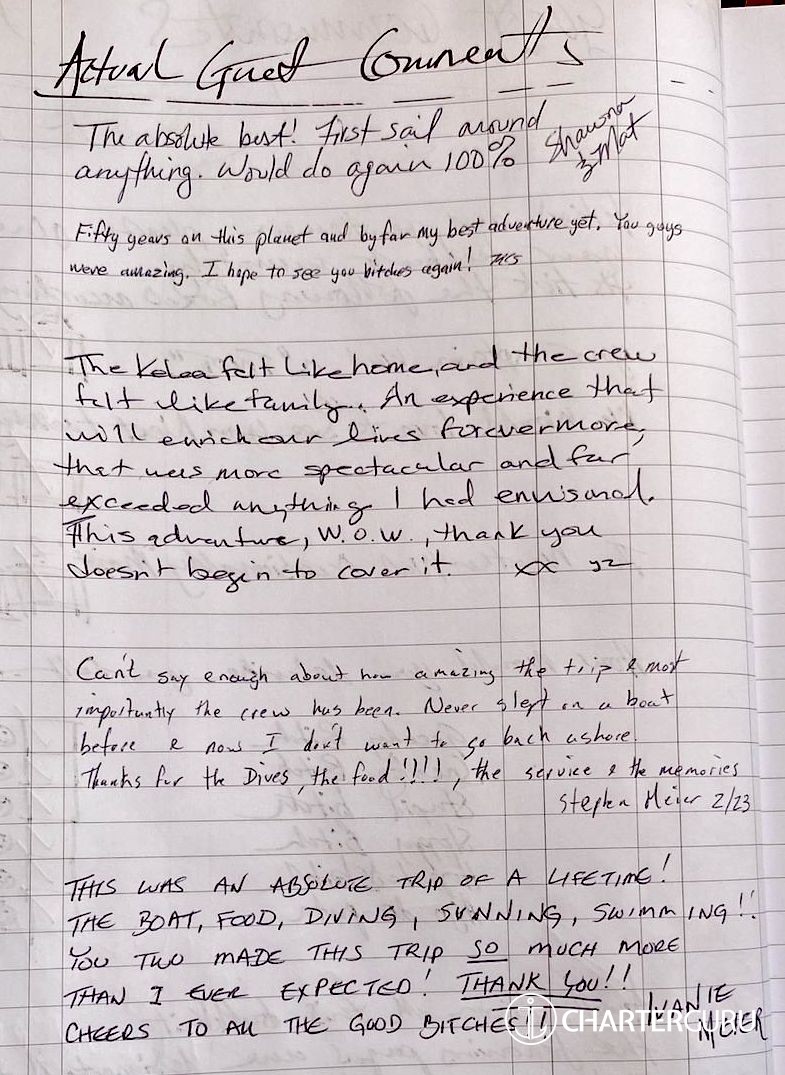 Actual Guest Comments
The absolute best! First sail around
anything. Would do again 100%
Shawna
& Mat
Fifty years on this planet and by far my best adventure yet. You guys
were amazing. I hope to see you bitches again!
The Kelea felt like home, and the crew
felt like family. An experience that
will enrich our lives forevermore,
that was more spectacular and far
exceeded anything I had envisond.
This adventure, W.O.W., thank you
doesn't begin to cover it. xx
Can't say enough about how amazing the trip & most
importantly the crew has been. Never slept on a boat
before & now I don't want to go back ashore.
Thanks for the Dives, the food!!!!, the service & the memories
Stephen Meier 2/23
THIS WAS AN ABSOLUTE TRIP OF A LIFETIME!
THE BOAT, FOOD, DIVING, SUNNING, SWIMMING!!
YOU TWO MADE THIS TRIP SO MUCH MORE
THAN I EVER EXPECTED! THANK YOU!!
CHEERS TO ALL THE GOOD BITCHES!!
MEIER
CHARTERGURU